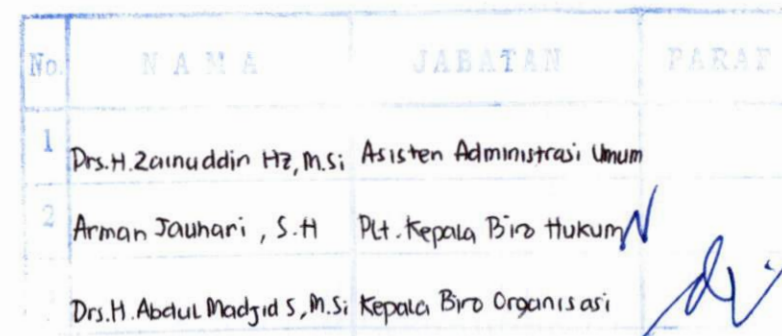 No. N A M A JABATAN PARAF
1 Drs.H.Zainuddin HZ, M.Si Asisten Administrasi Umum
2 Arman Jauhari, S.H Plt. Kepala Biro Hukum
Drs.H.Abdul Madjid S, M.Si Kepala Biro Organisasi